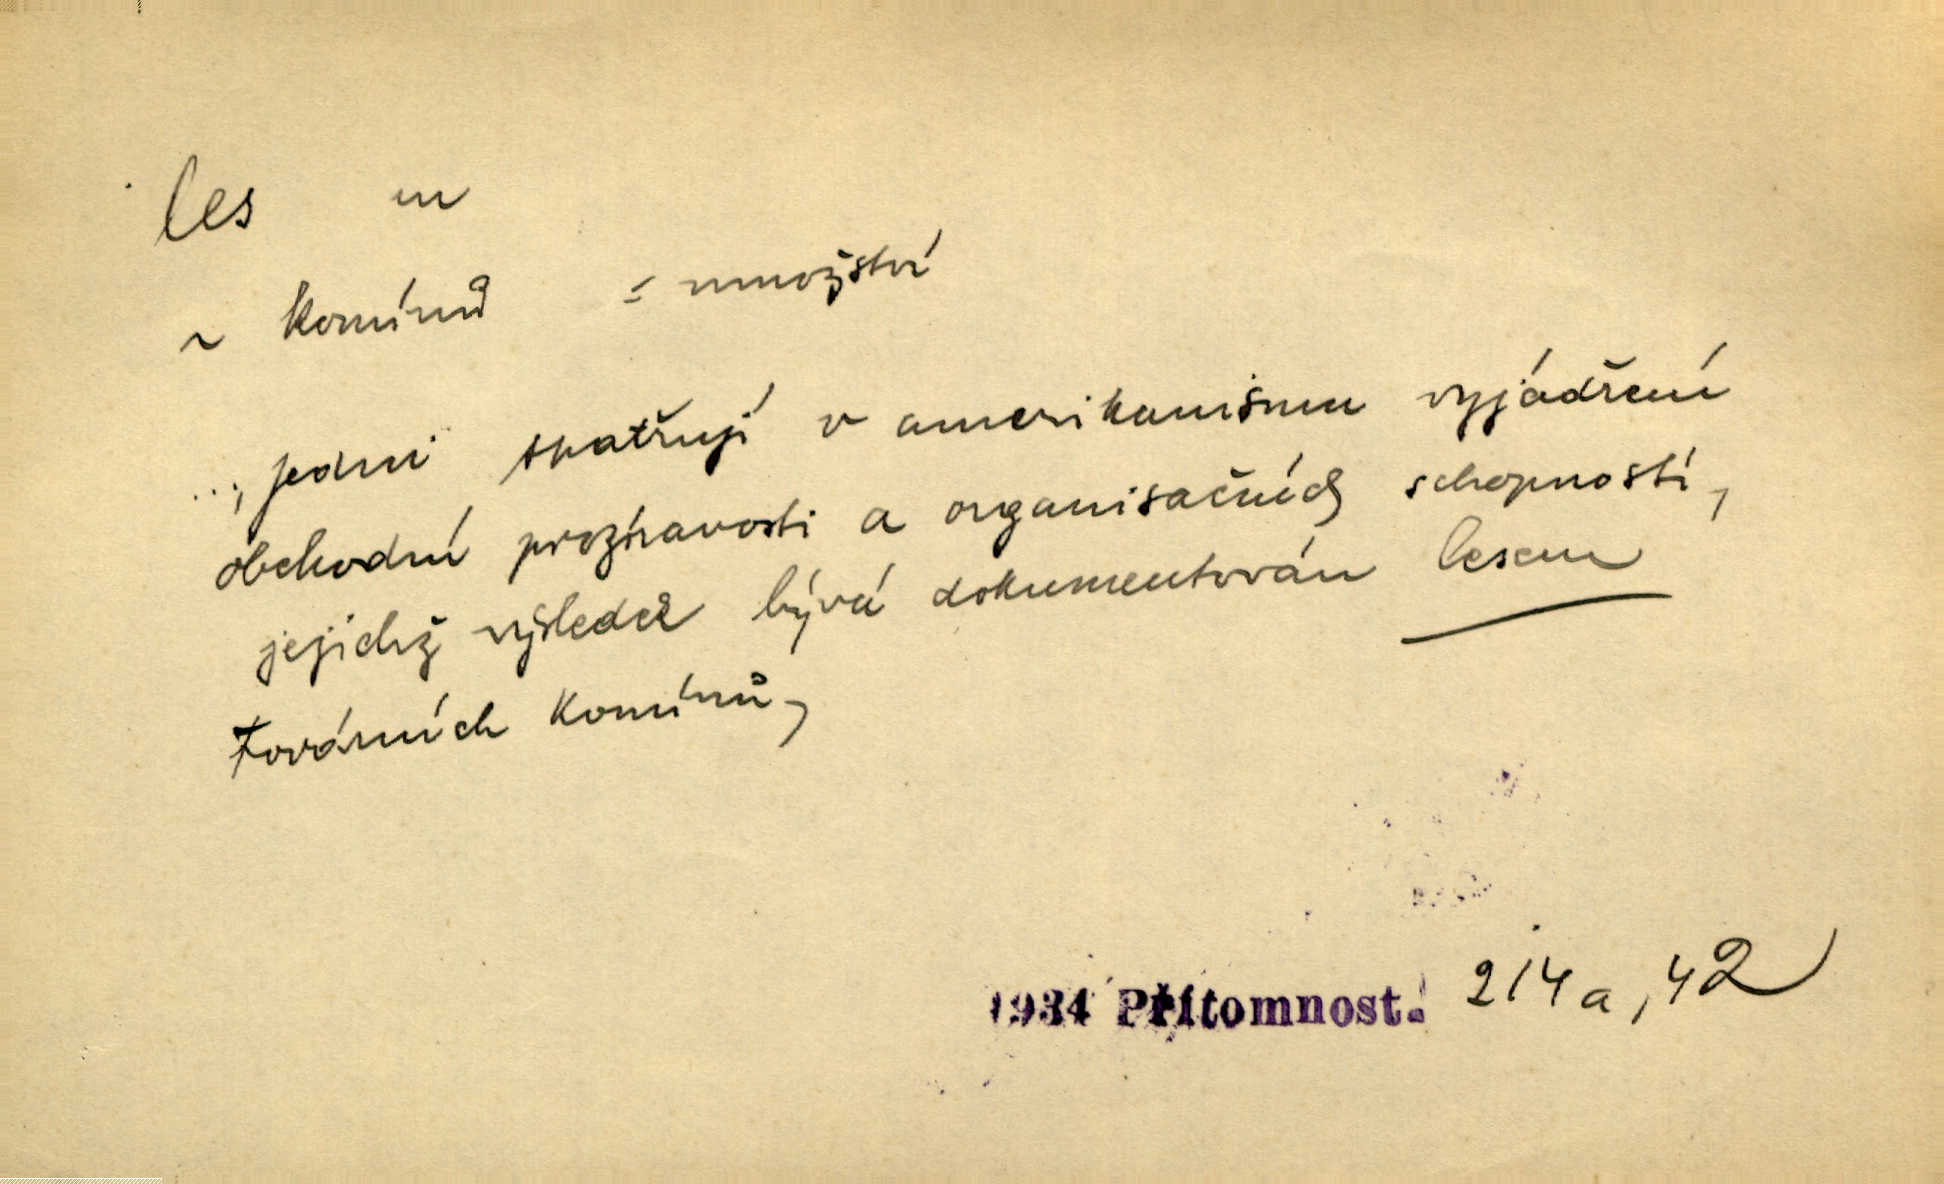 les m
~ komínů = množství
..., jedni spatřují v amerikanismu vyjádření
obchodní prozíravosti a organisačních schopností,
jejichž výsledek bývá dokumentován lesem
továrních komínů,
1934 Přítomnost. 214a, 42